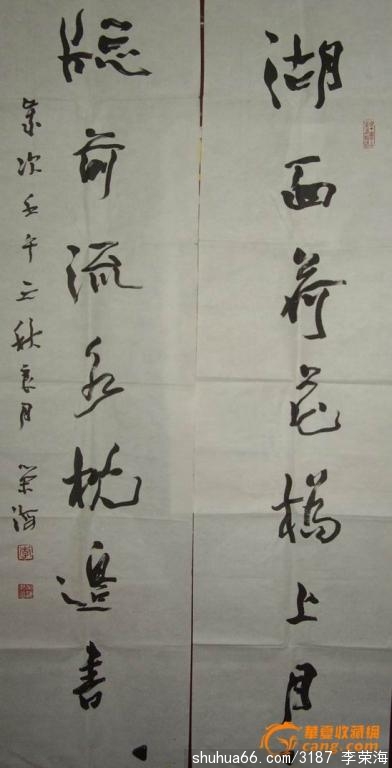 湖面荷花橋上月
牕前流水枕邊書
歲次壬午之秋良月 榮海
華夏收藏網
cang.com
shuhua66.com/3187 李荣海